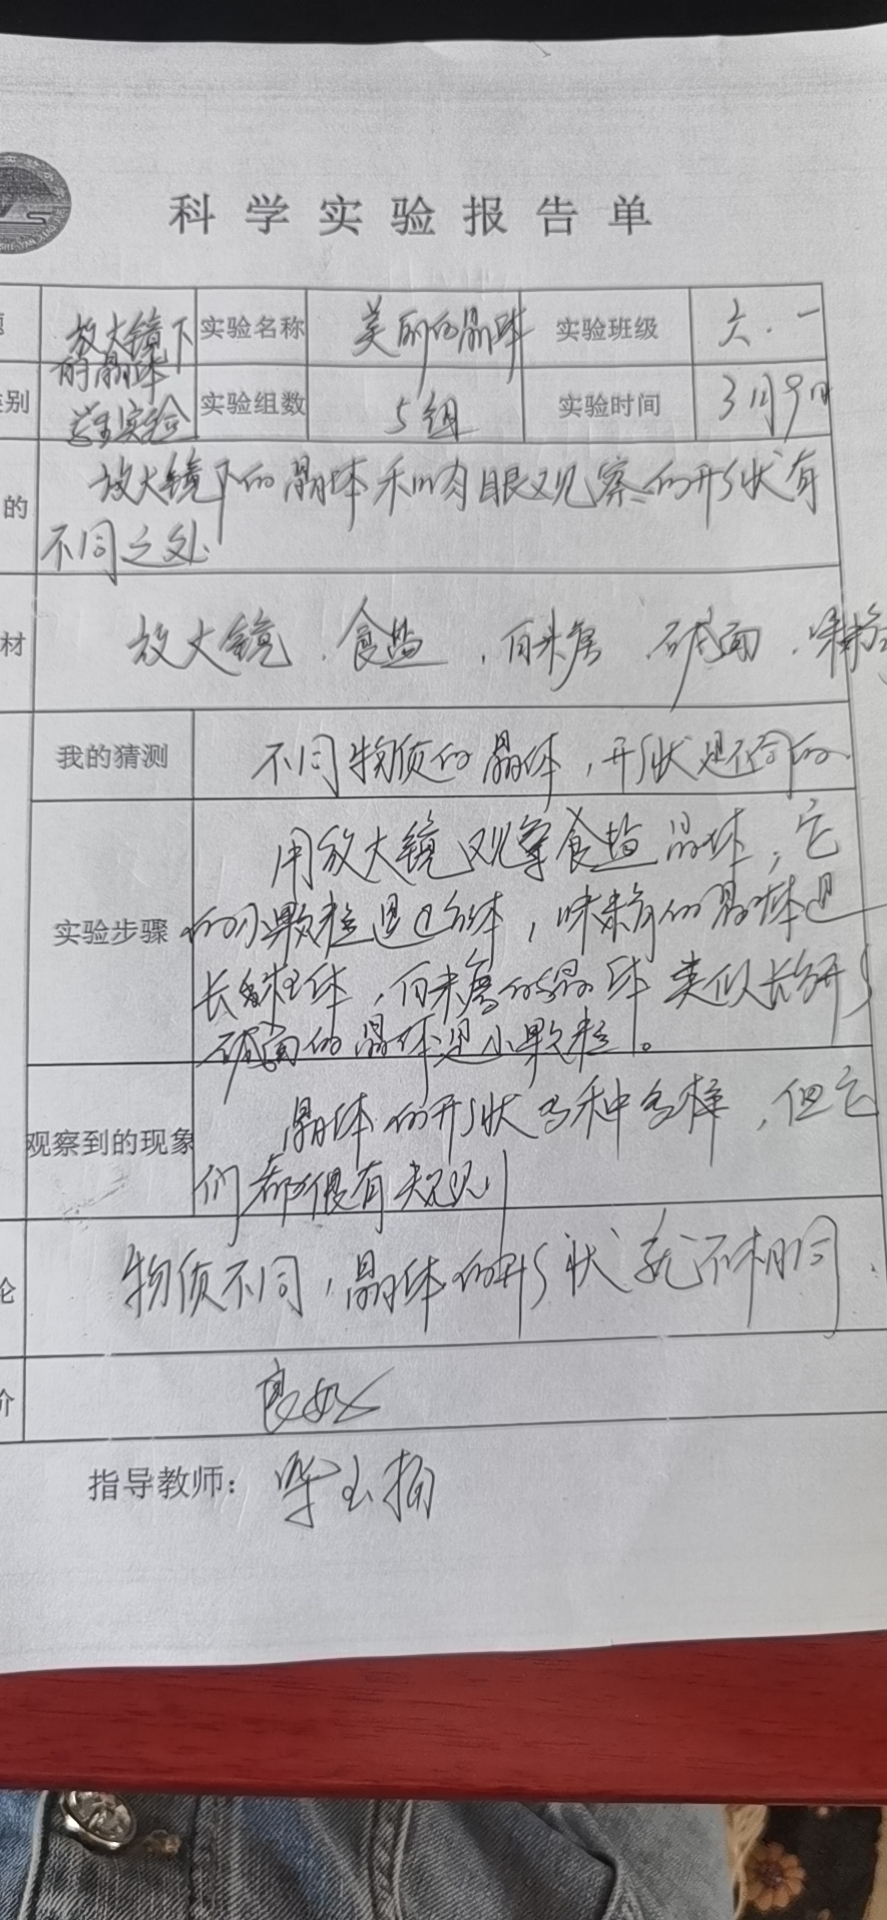 科学实验报告单
放大镜下的晶体 实验名称 美丽的晶体 实验班级 六.一
别 学生实验 实验组数 5组 实验时间 3月9日
的 放大镜下的晶体和肉眼观察的形状有
不同之处
材 放大镜、食盐、白米唐 碱面、味精
我的猜测 不同物质的晶体,形状是不同的
用放大镜观察食盐晶体,它
实验步骤 的小颗粒是正方体,味精的晶体是
长柱体,白米唐的晶体类似长方形
碱面的晶体是小颗粒。
晶体的形状多种多样,但它
观察到的现象
们都很有规则
论 物质不同,晶体的形状就不相同.
价 良好
指导教师: